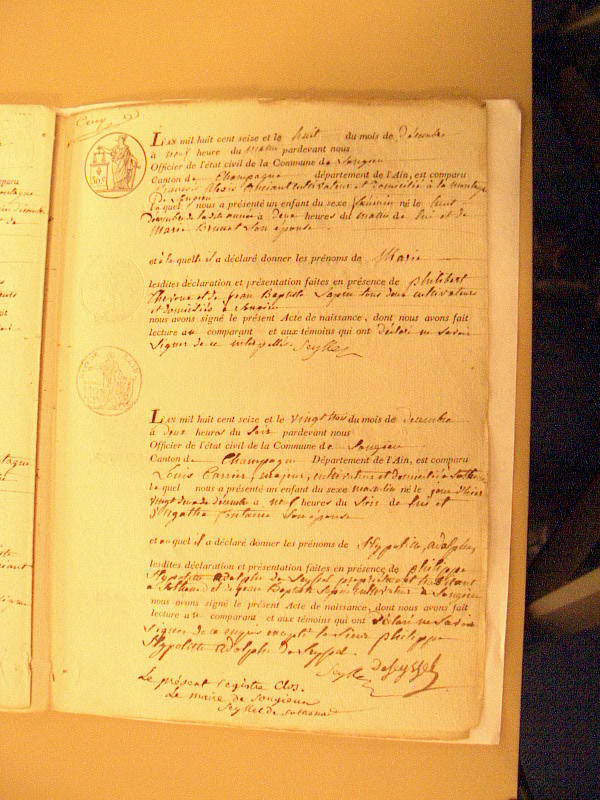 Cinq
LAN mil huit cent seize et le huit du mois de Décembre
à neuf heure du matin pardevant nous
Officier de l'état civil de la Commune de Songieu
Canton de Champagne département de l'Ain, est comparu
François cultivateur et domicilié à la
De Songieu
lequel nous a présenté un enfant du sexe féminin né le huit
Décembre de la dite année à Deux heures du matin de lui et de
Marie Brunet Son épouse
et à la quelle il a déclaré donner les prénoms de Marie
lesdites déclaration et présentation faites en présence de philibert
et de Jean Baptiste tous deux cultivateurs
et domiciliés à Songieu
nous avons signé le présent Acte de naissance, dont nous avons fait
lecture au comparant et aux témoins qui ont déclaré ne savoir
signer de ce
LAN mil huit cent seize et le vingt trois du mois de decembre
à deux heures du soir pardevant nous
Officier de l'état civil de la Commune de Songieu
Canton de Champagne Département de l'Ain, est comparu
Louis Carrier majeur, cultivateur et domicilié à
le quel nous a présenté un enfant du sexe masculin né le jour d'hier
vingt deux de décembre à neuf heures du Soir de lui et
d'Agathe fontaine Son épouse
et au quel il a déclaré donner les prénoms de Hypolitte, adolphe,
lesdites déclaration et présentation faites en présence de philippe
Hypolitte adolphe de Seyssel propriétaire
et de Jean Baptiste cultivateur à Songieu
nous avons signé le présent Acte de naissance, dont nous avons fait
lecture au comparant et aux témoins qui ont déclaré ne savoir
signer de ce excepté le Sieur philippe
Hypolitte adolphe De Seyssel.
De Seyssel
Le présent registre Clos.
Le maire de Songieu